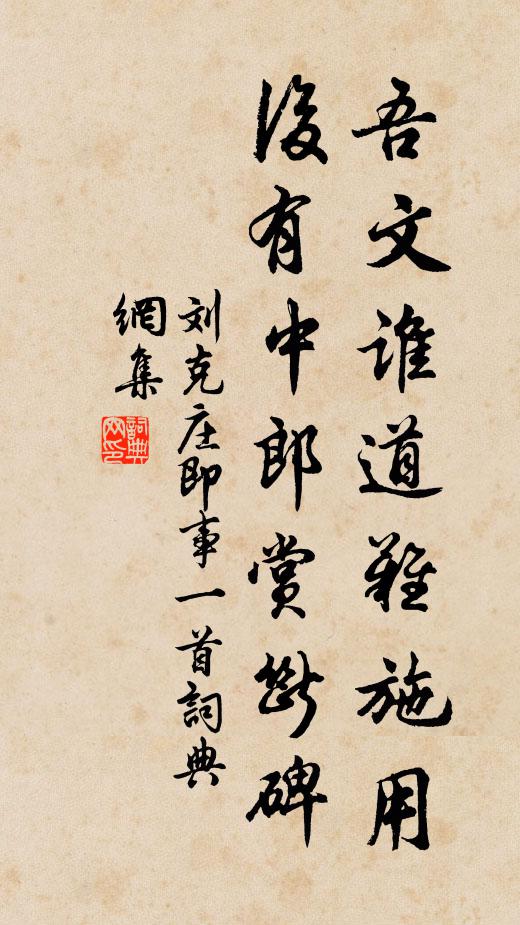 吾文谁道难施用
没有中郎赏断碑
刘克庄即事一首詞典
網集
詞典网印